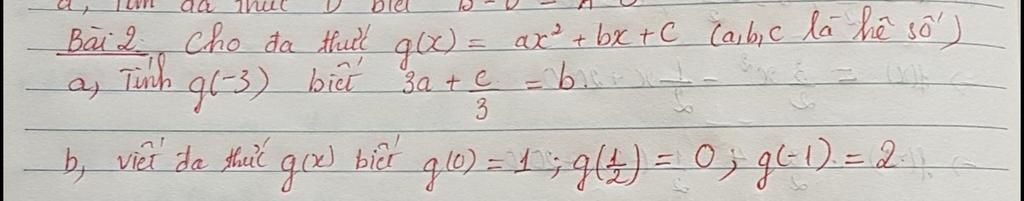 a, Tìm đa thức D biết B - D = A - C
Bài 2. Cho đa thức g(x) = ax² + bx + c (a,b,c là hệ số)
a, Tính g(-3) biết 3a + c/3 = b.
b, viết đa thức g(x) biết g(0) = 1; g(1/2) = 0; g(-1) = 2.